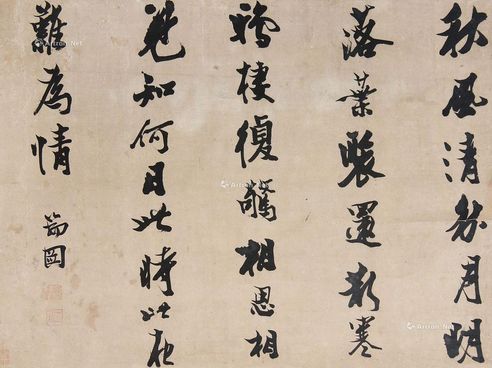 秋風清秋月明
落葉聚還散寒
鴉棲復驚相思相
見知何日此時此夜
難為情
瑞圖
Artron.Net
Artron.Net
Artron.Net
Artron.Net